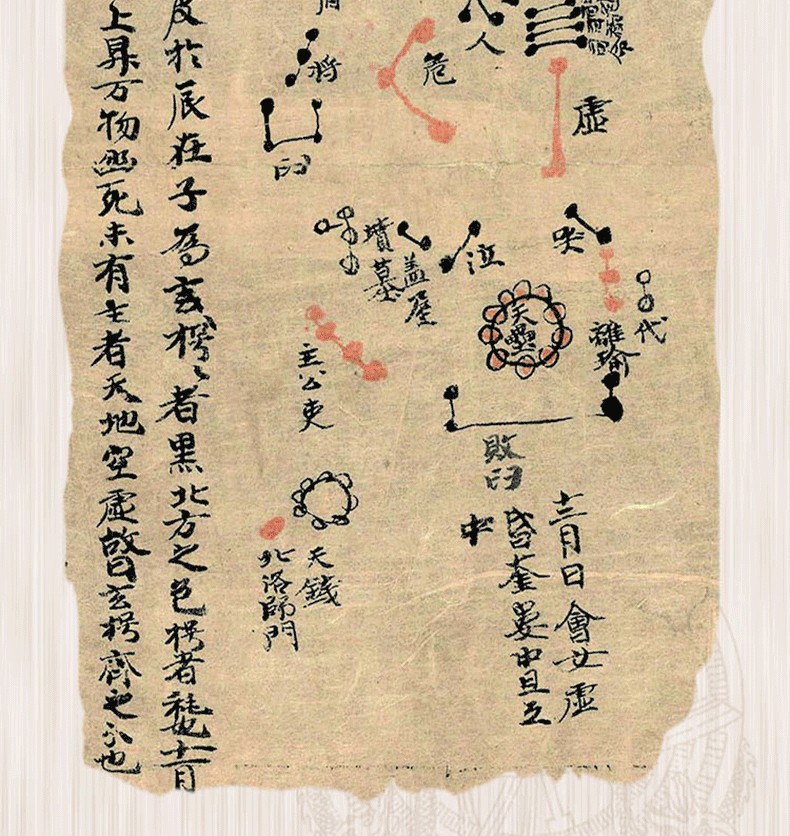 人
虛
危
將
臼
哭
代
離瑜
泣
盖屋
墳墓
天壘
主公吏
敗臼
十二月日會女虛
昏奎婁中旦互
中
天錢
北洛師門
於辰在子為玄枵々者黑北方之色枵者秏十一月
上昇万物幽死未有生者天地空虛故曰玄枵齊之分也